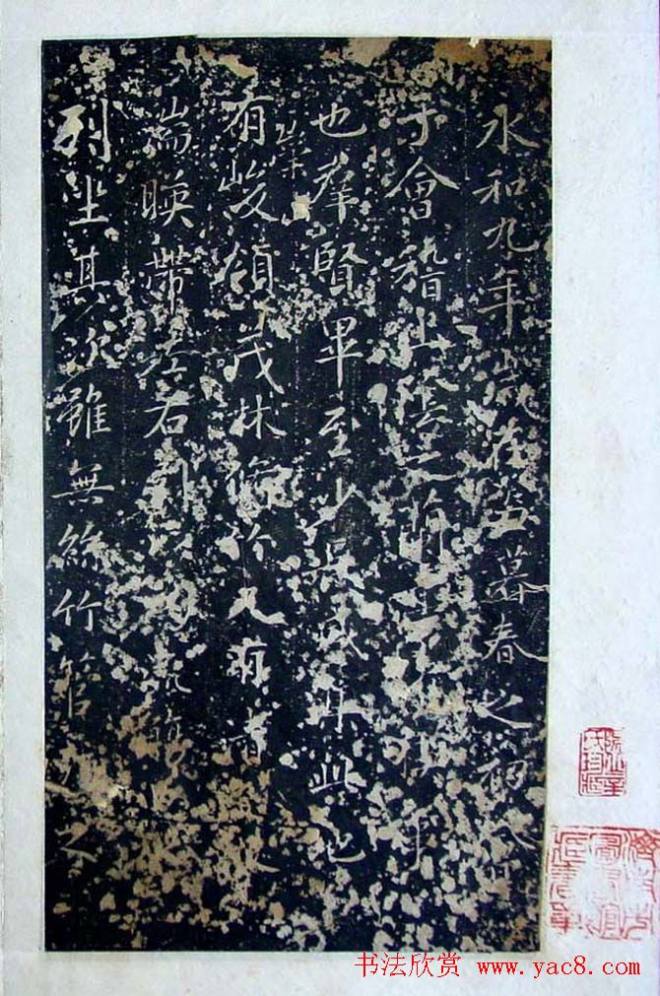 永和九年歲在暮春之初
于會稽山陰之蘭亭脩稧
也羣賢畢至少長咸集此地
有崇山峻領茂林脩竹又有清
湍暎帶左右引以為流觴
列坐其次雖無絲竹管之
书法欣赏 www.yac8.com